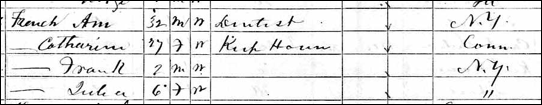 French Am 32 m w Dentist N.Y.
— Catharine 27 F w Keep House Conn
— Frank 2 m w N.Y.
— Julia 6 F w "